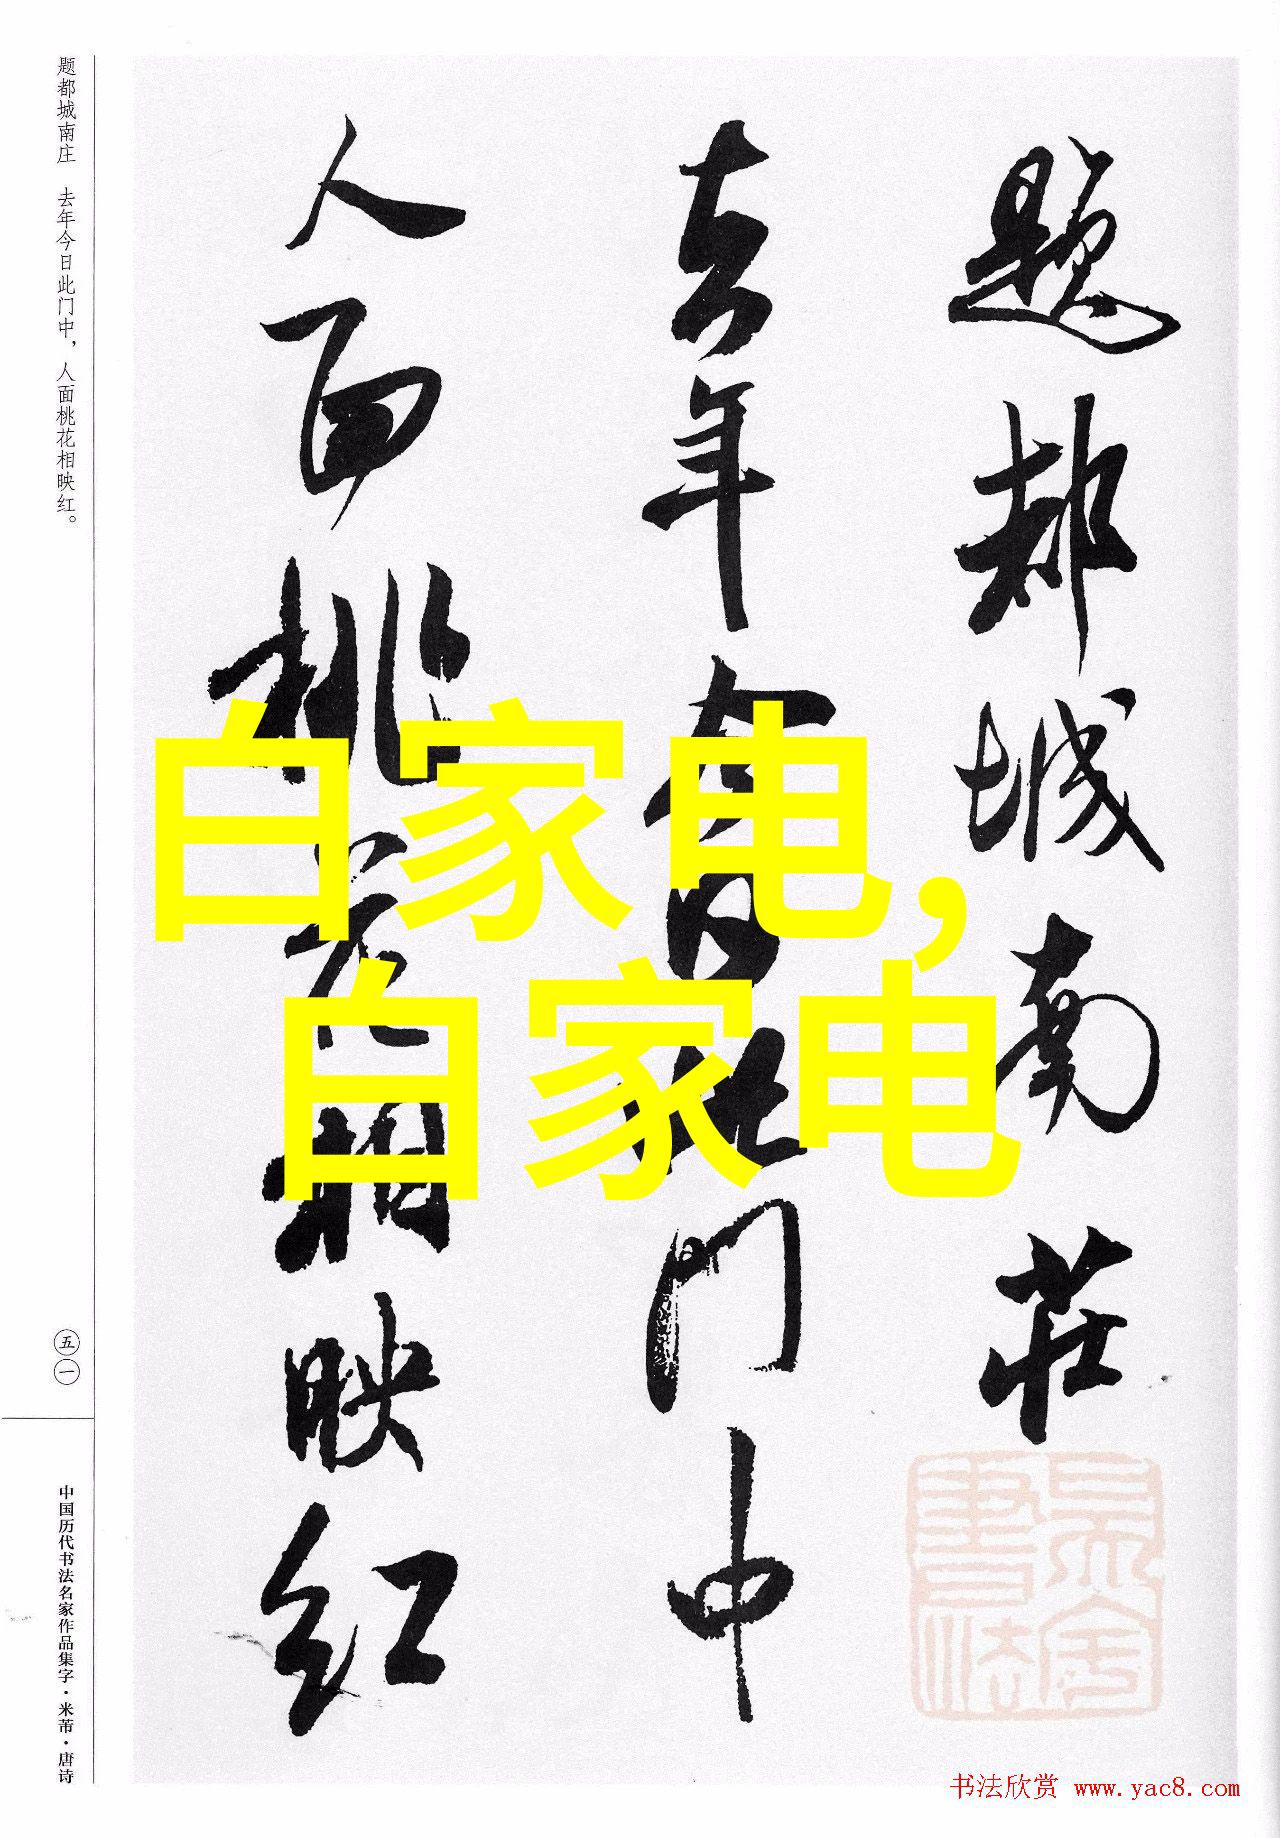 题都城南莊
去年今日此門中
人面桃花相映红
白家电，
白家电
题都城南庄　去年今日此门中，人面桃花相映红。
五一
中国历代书法名家作品集字·米芾·唐诗
书法欣赏 www.yac8.com